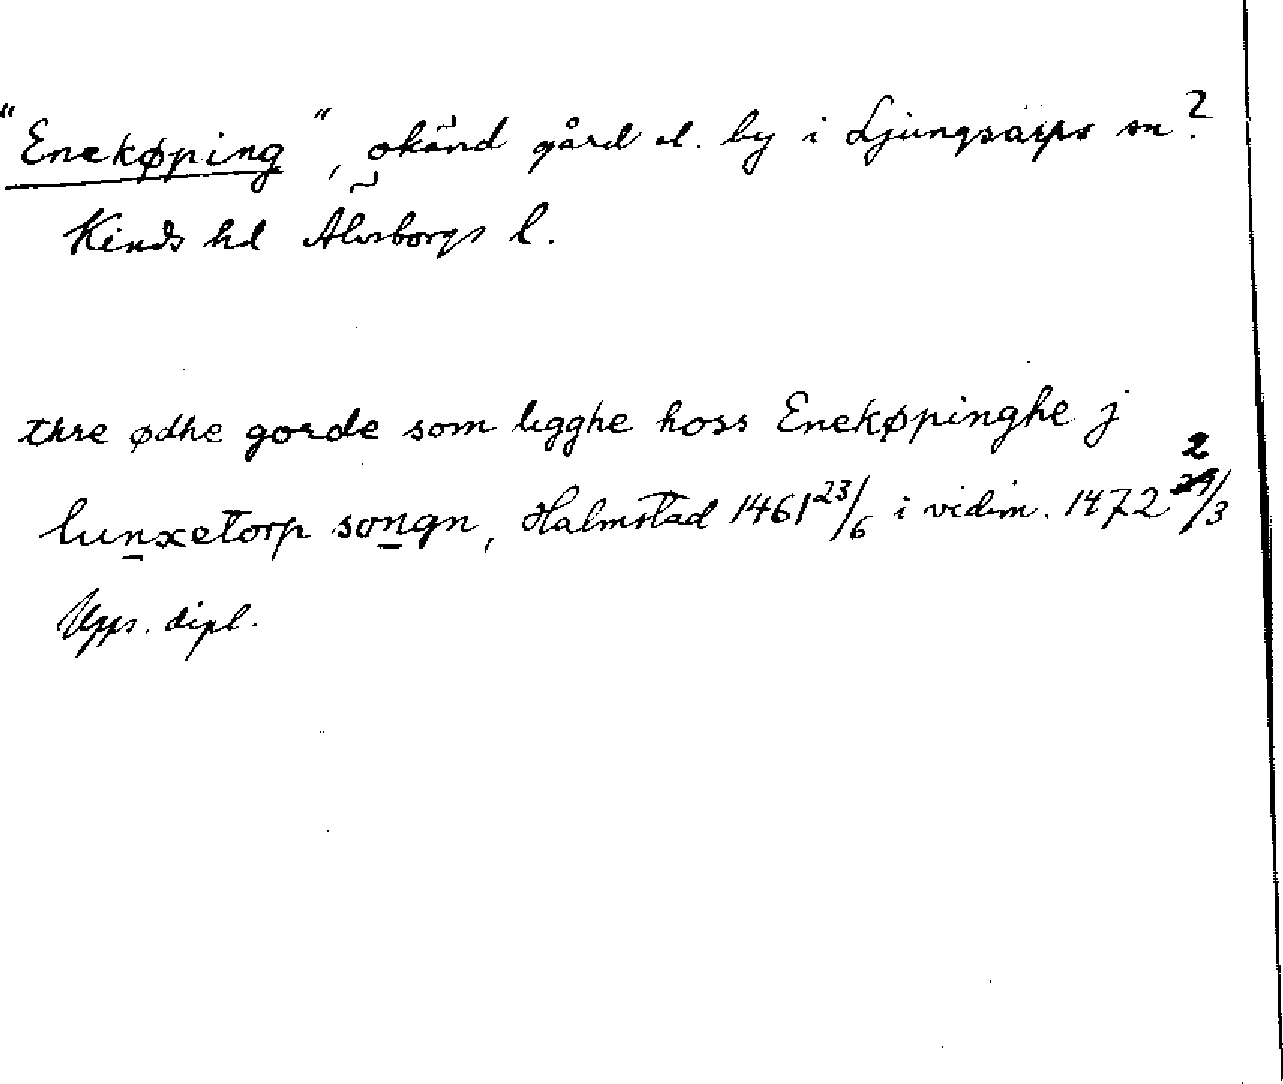 "Enekøping", okänd gård el. by i Ljungsarps sn?
Kinds hd Älvsborgs l.
thre ødhe gorde som ligghe hoss Enekøpinghe j
lunxetorp songn, Halmstad 1461 23/6 i vidim. 1472 2/3
Upps. dipl.